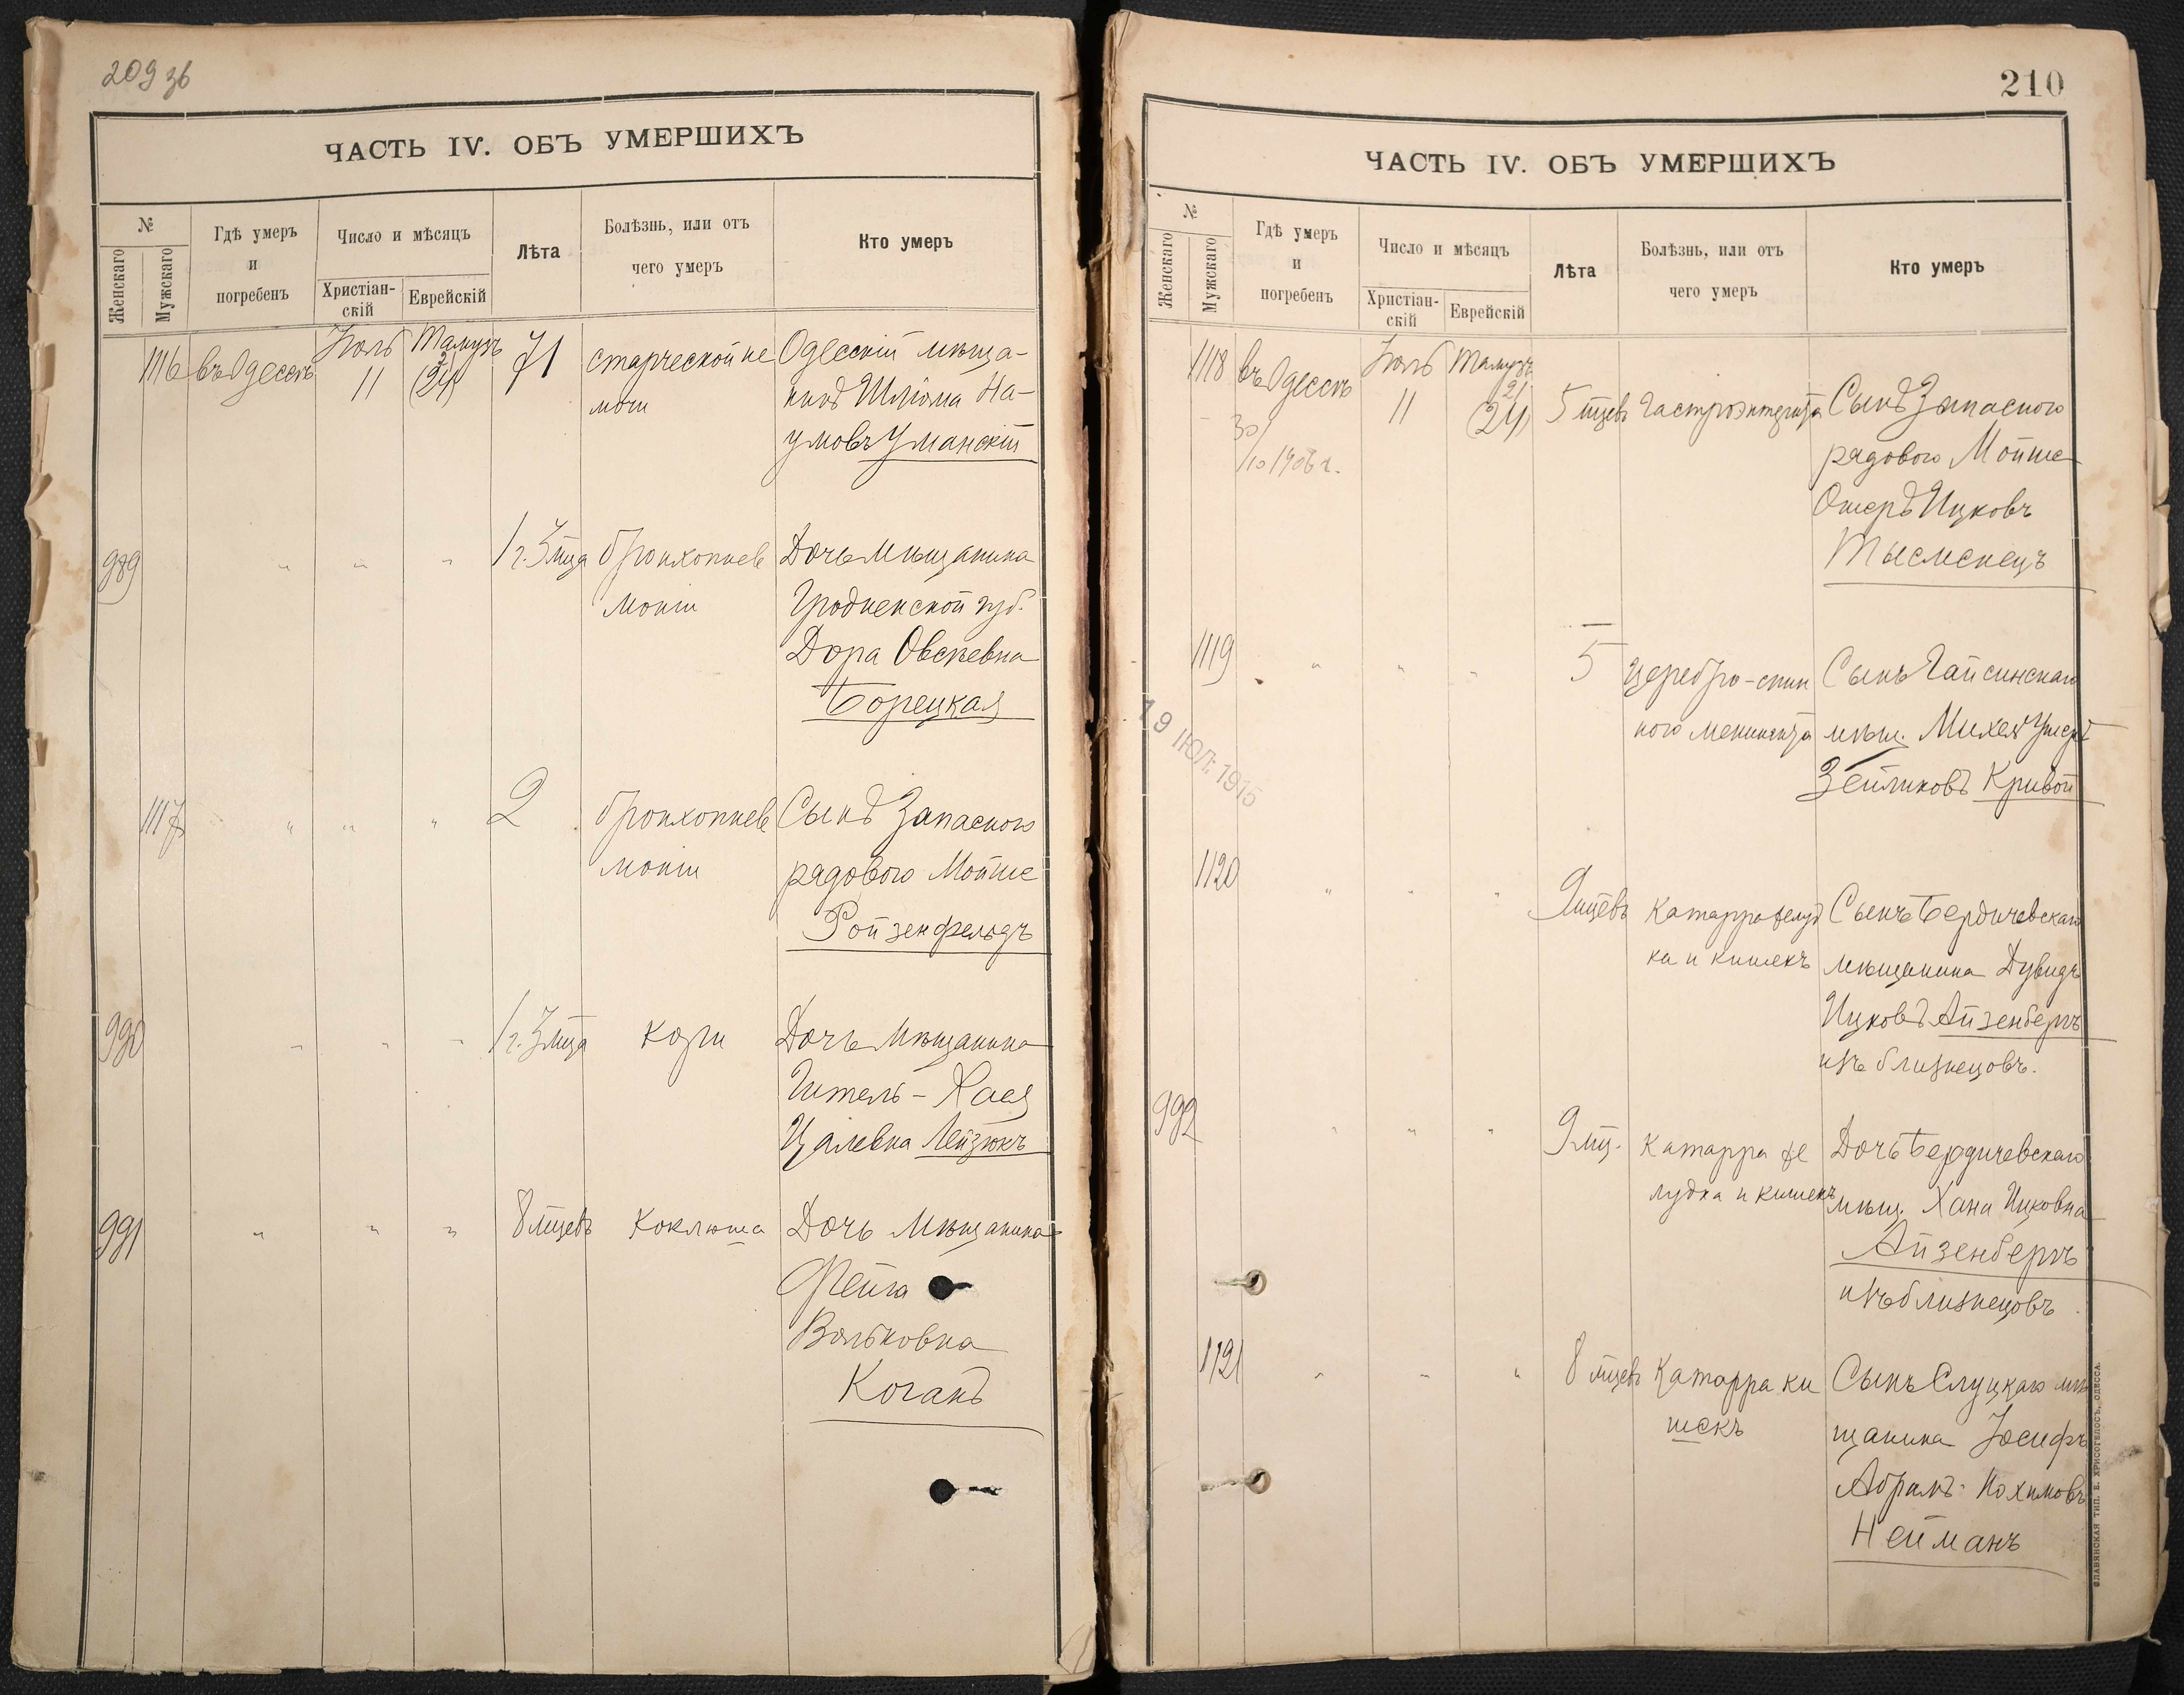 209 зв
ЧАСТЬ IV. ОБЪ УМЕРШИХЪ
№
Женскаго
Мужскаго
Гдѣ умеръ
и
погребенъ
Число и мѣсяцъ
Христіан-
скій
Еврейскій
Лѣта
Болѣзнь, или отъ
чего умеръ
Кто умеръ
1116 въ Одессѣ Іюль 11 Тамузъ 2 (24) 71 старческой не Одесскій мѣща-
мощи нинъ Шлiома На-
умовъ Уманскій
989 " " " 1 г. 3 мца бронхопнев Дочь мѣщанина
моніи Гродненской губ.
Дора Овсѣевна
Борецкая
1117 " " " 2 бронхопнев Сынъ Запасного
моніи рядового Мойше
Ройзенфельдъ
990 " " " 1 г. 3 мца Кори Дочь мѣщанина
Гитель - Хая
Цалевна Лейзюкъ
991 " " " 8 мцевъ Коклюша Дочь Мѣщанина
Фейга
Вольковна
Коганъ
210
ЧАСТЬ IV. ОБЪ УМЕРШИХЪ
№
Женскаго
Мужскаго
Гдѣ умеръ
и
погребенъ
Число и мѣсяцъ
Христіан-
скій
Еврейскій
Лѣта
Болѣзнь, или отъ
чего умеръ
Кто умеръ
1118 въ Одессѣ Іюль 11 Тамузъ (24) 5 мцевъ Гастроэнтерита Сынъ Запасного
30/10 1906 г. рядового Мойше
Ошеръ Ицковъ
Тысменецъ
1119 " " " 5 Церебро-спин Сынъ Гайсинскаго
ного менингита мѣщ. Михель Ушеръ
Зейликовъ Кривой
19 ІЮЛ. 1915
1120 " " " 9 мцевъ Катарра желуд Сынъ Бердичевскаго
ка и кишекъ мѣщанина Дувидъ
Ицковъ Айзенбергъ
изъ близнецовъ.
992 " " " 9 мц. Катарра же Дочь Бердичевскаго
лудка и кишекъ мѣщ. Хана Ицковна
Айзенбергъ
изъ близнецовъ
1121 " " " 8 мцевъ Катарра ки Сынъ Слуцкаго мѣ
шекъ щанина Іосифъ
Абрамъ - Нохимовъ
Нейманъ
СЛАВЯНСКАЯ ТИП. Е. ХРИСОГЕЛОСЪ, ОДЕССА.